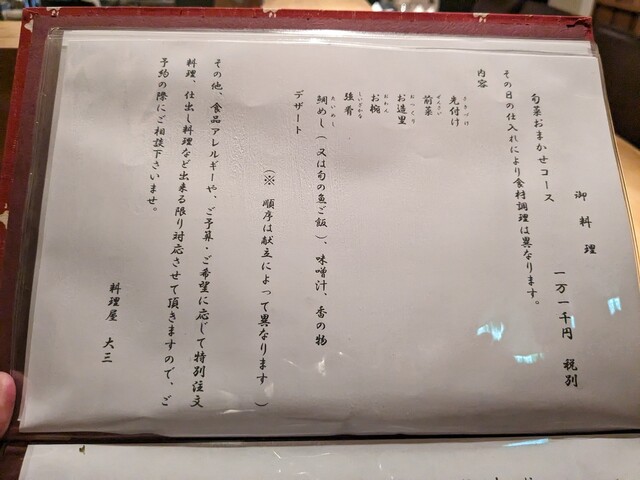 御料理
旬菜おまかせコース 一万一千円 税別
その日の仕入れにより食材調理は異なります。
内容
先付け
さきづけ
前菜
ぜんさい
お造里
おつくり
お椀
おわん
強肴
しいざかな
鯛めし(又は旬の魚ご飯)、味噌汁、香の物
たいめし
デザート
(※ 順序は献立によって異なります)
その他、食品アレルギーや、ご予算・ご希望に応じて特別注文
料理、仕出し料理など出来る限り対応させて頂きますので、ご
予約の際にご相談下さいませ。
料理屋 大三